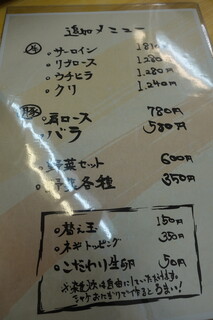 追加メニュー
牛
。サーロイン 1.810円
。リブロース 1.280円
。ウチヒラ 1.280円
。クリ 1.240円
豚
。肩ロース 780円
。バラ 580円
。野菜セット 600円
。野菜各種 350円
。替え玉 150円
。ネギトッピング 350円
。こだわり生卵 50円
※雑炊は自由にしていただけます。
シャケおにぎりで作ると うまい!